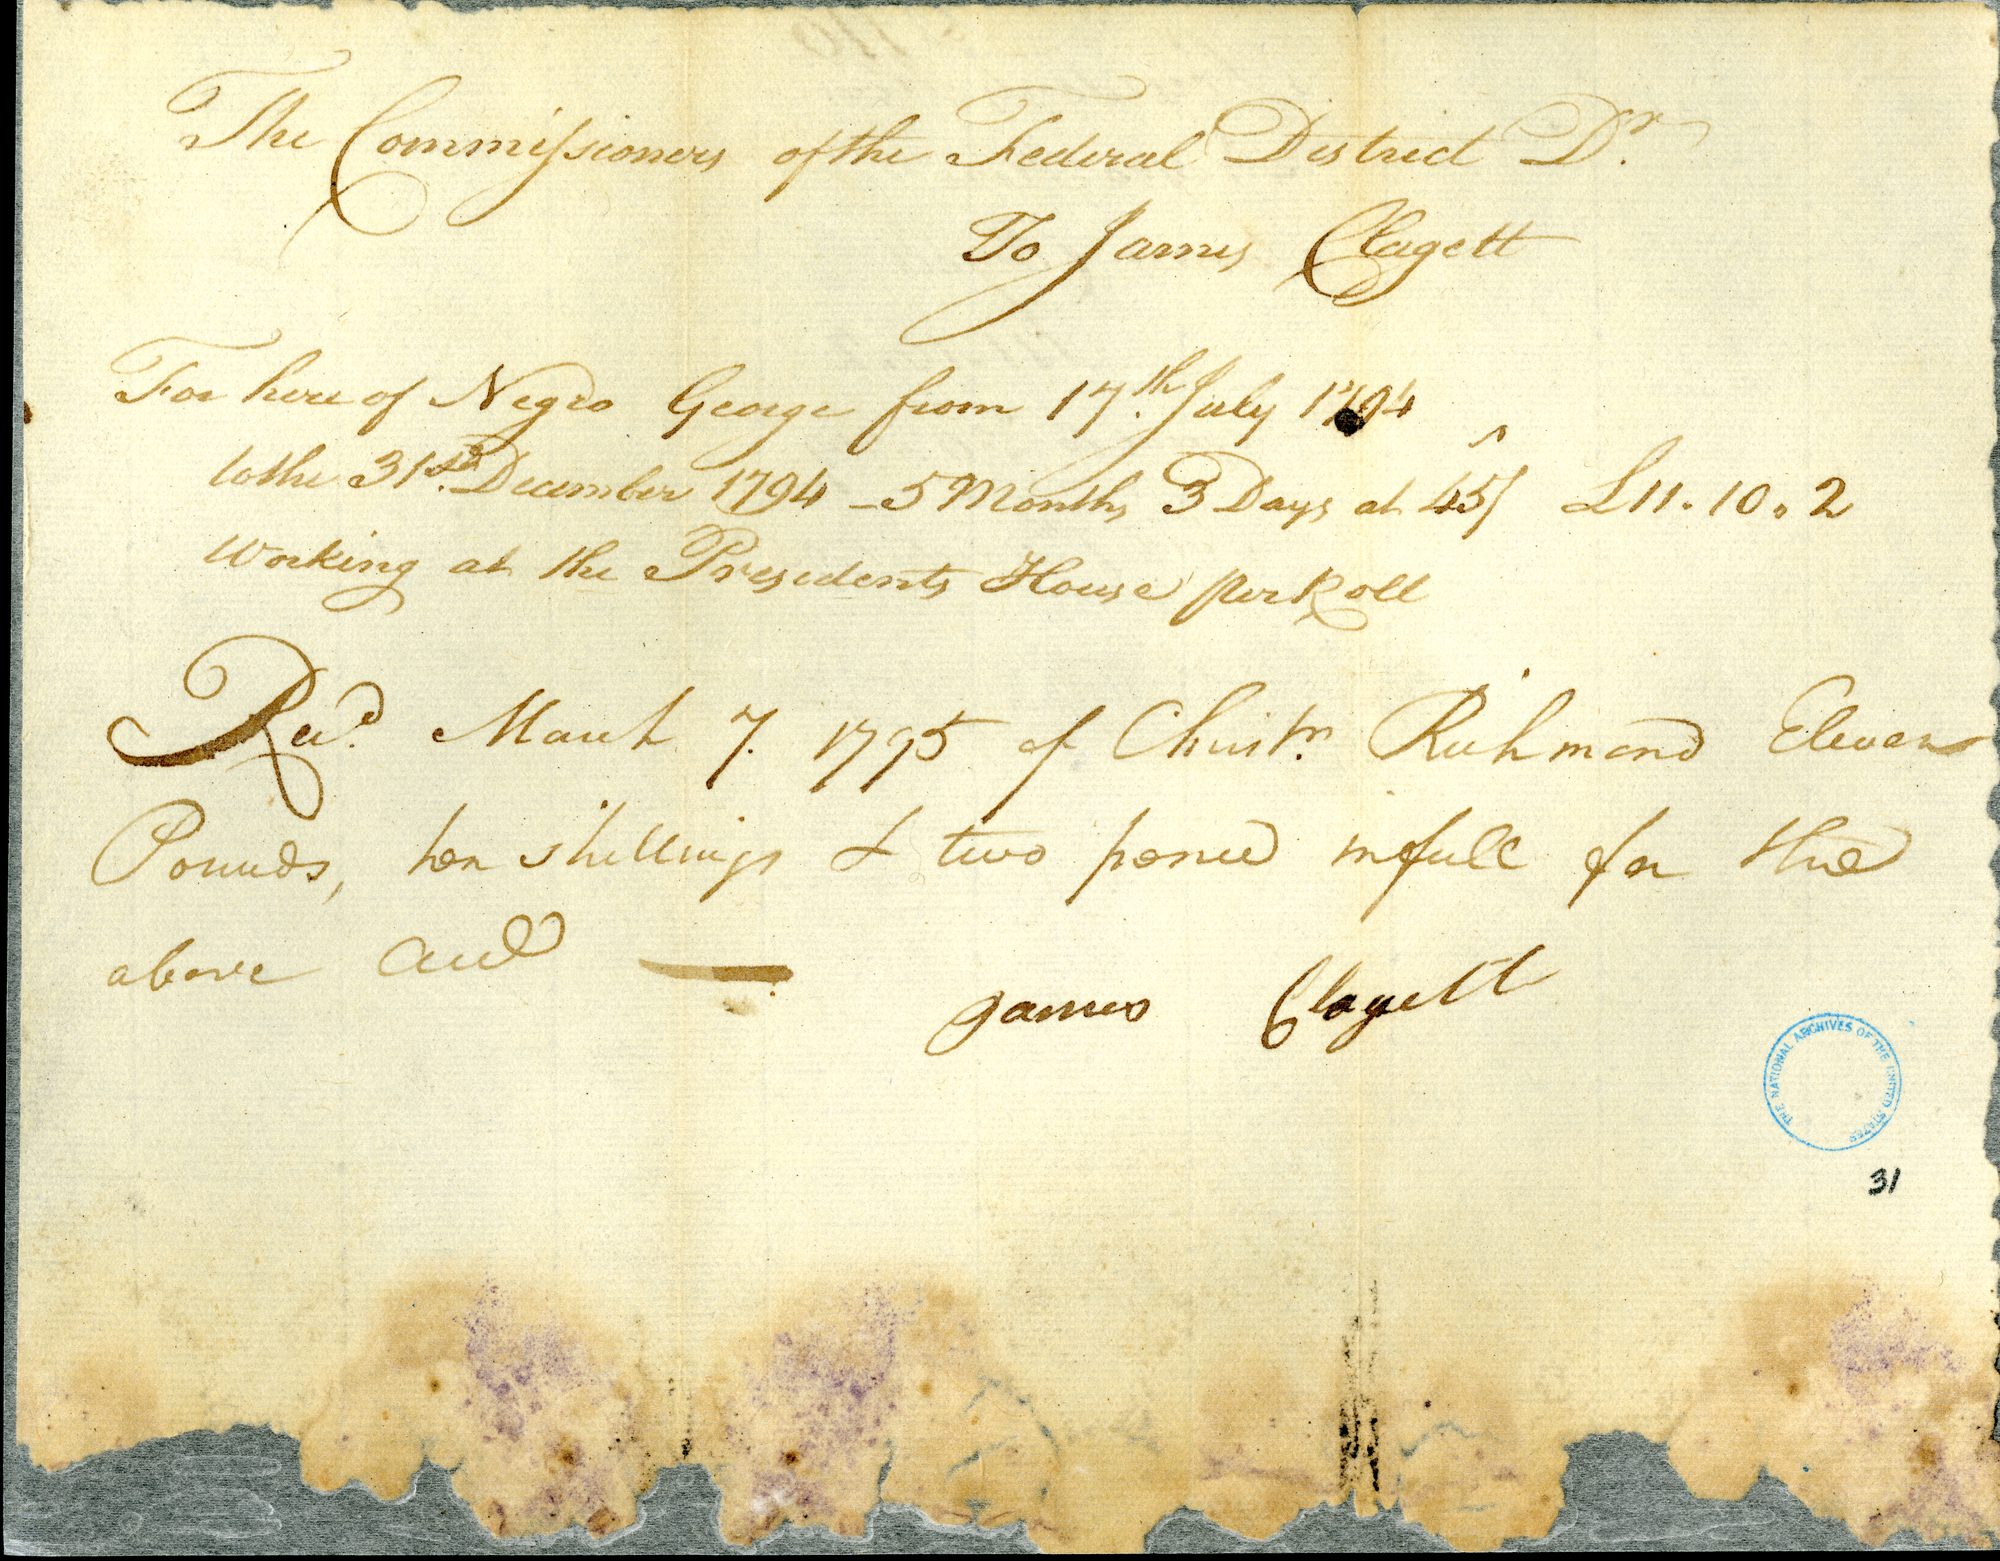 The Commissioners of the Federal District Dr.
To James Clagett
For hire of Negro George from 17th July 1794
to the 31st December 1794 - 5 Months 3 Days at 45/ £11.10.2
Working at the Presidents House per Roll
Recd. March 7. 1795 of Christr. Richmond Eleven
Pounds, ten shillings & two pence in full for the
above
James Clagett
THE NATIONAL ARCHIVES OF THE UNITED STATES
31